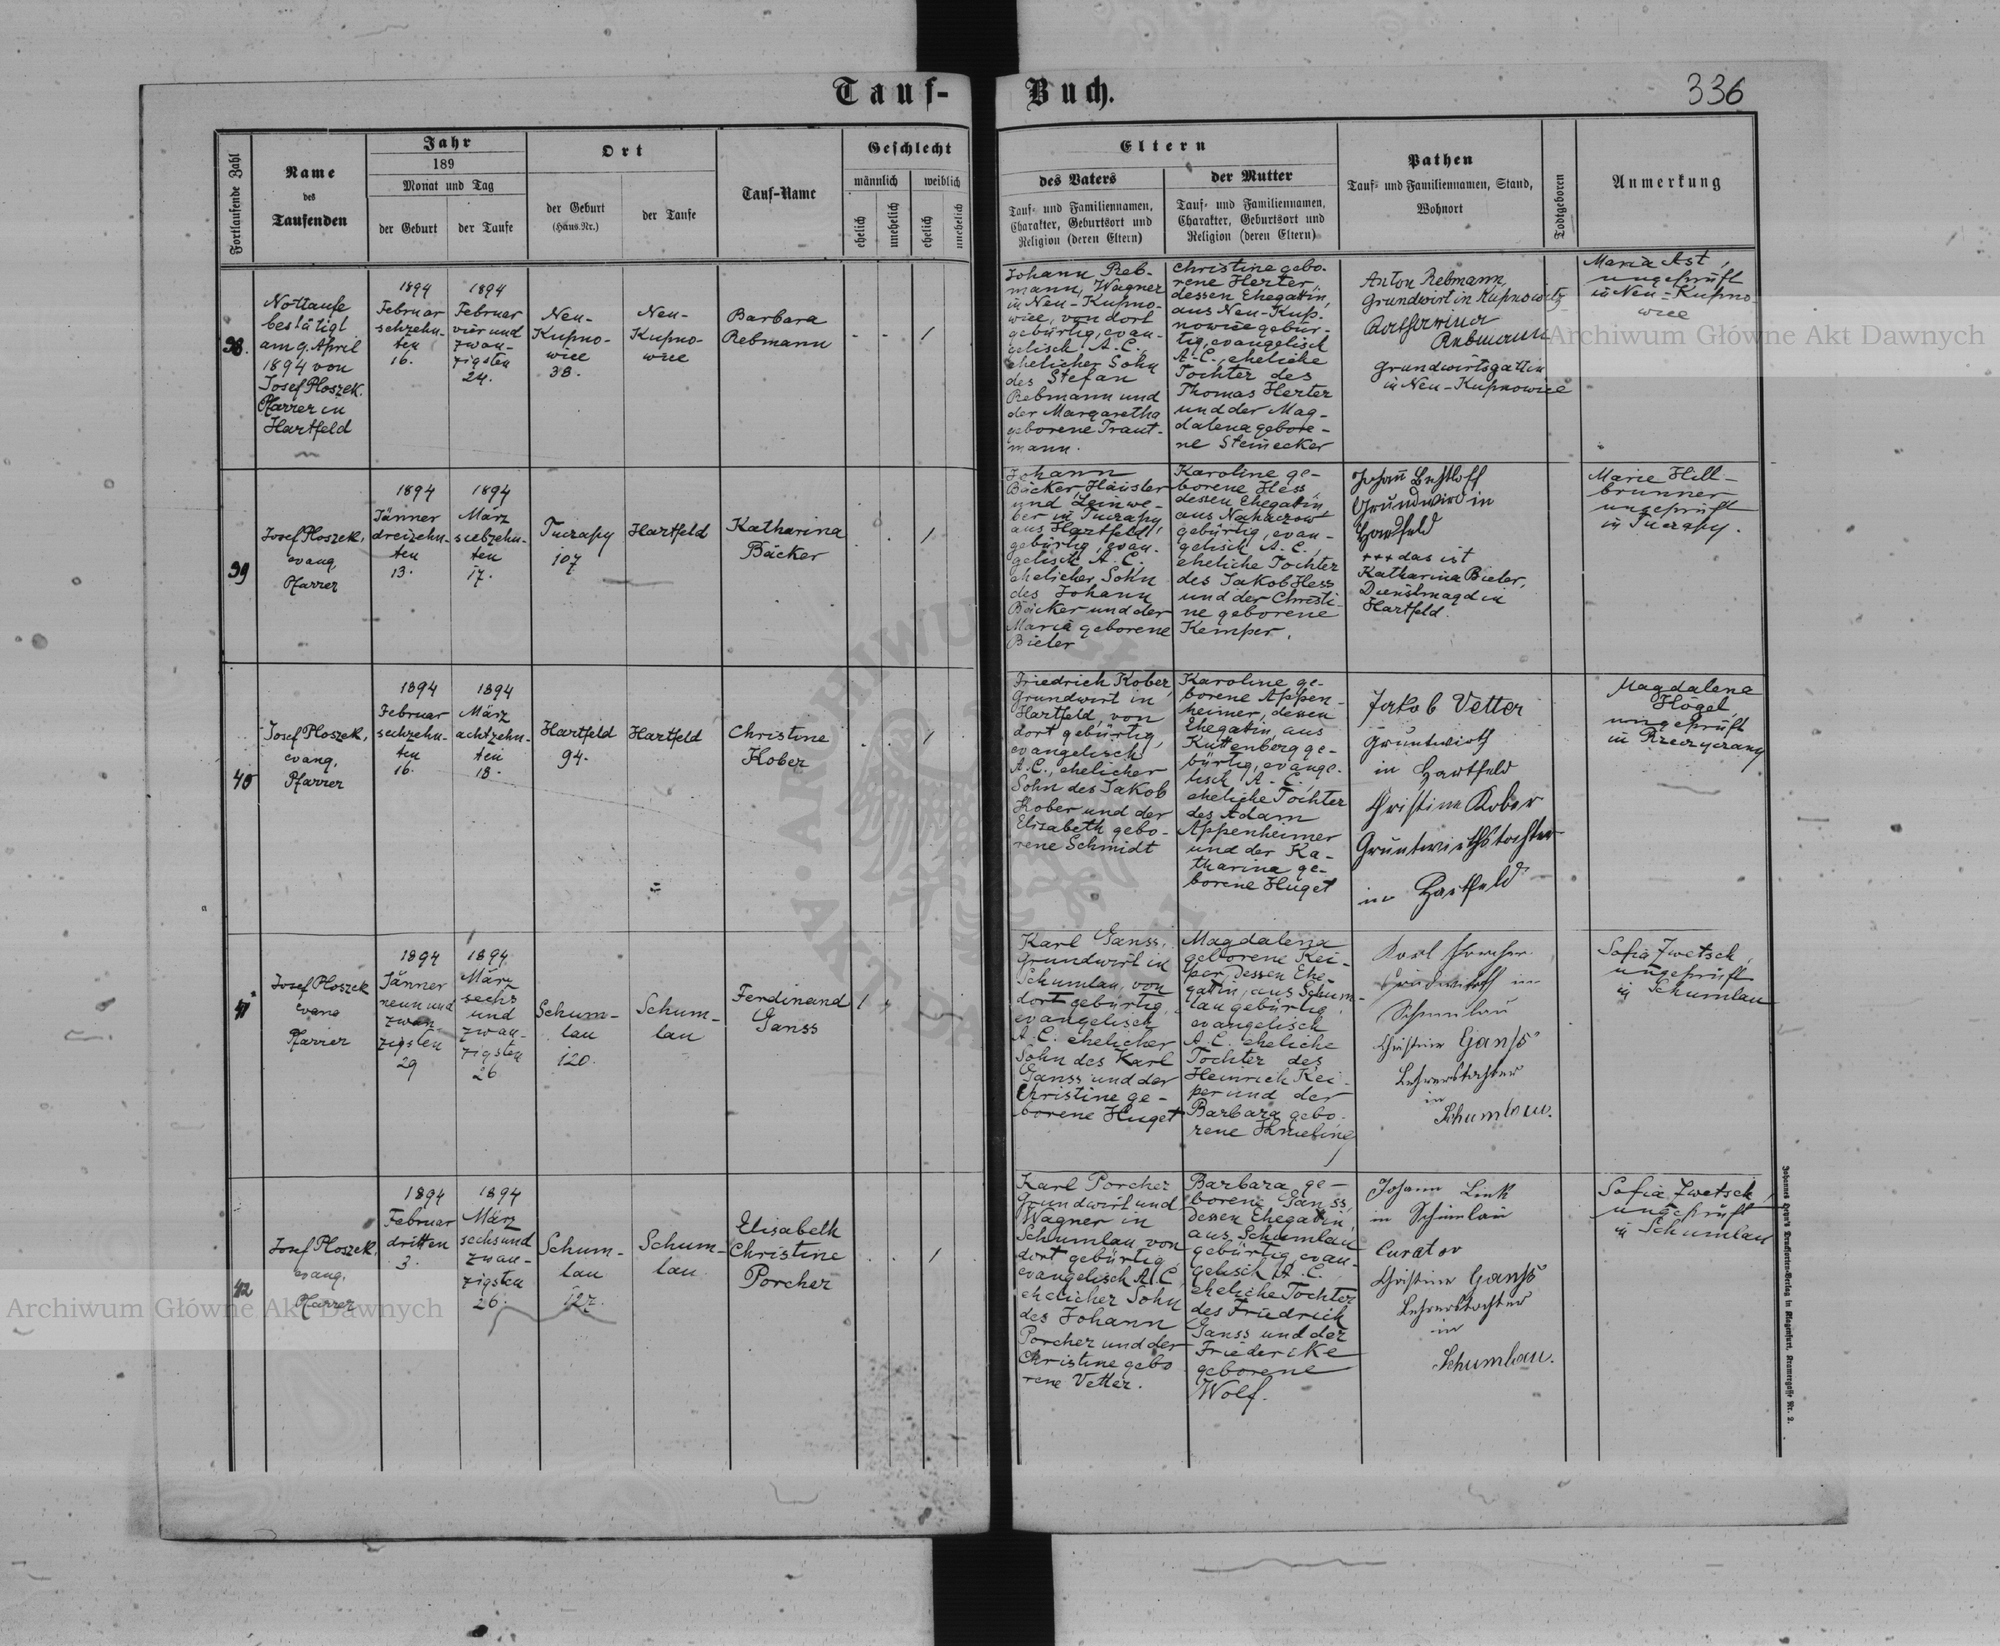 Tauf-
Buch.
336
Fortlaufende Zahl
Name
des
Taufenden
Jahr
189
Monat und Tag
der Geburt
der Taufe
Ort
der Geburt
(Haus-Nr.)
der Taufe
Tauf-Name
Geschlecht
männlich
weiblich
ehelich
unehelich
ehelich
unehelich
Eltern
des Vaters
Tauf- und Familiennamen,
Charakter, Geburtsort und
Religion (deren Eltern)
der Mutter
Tauf- und Familiennamen,
Charakter, Geburtsort und
Religion (deren Eltern)
Pathen
Tauf- und Familiennamen, Stand,
Wohnort
Todtgeboren
Anmerkung
38.
Nottaufe
bestätigt
am 9. April
1894 von
Josef Ploszek.
Pfarrer in
Hartfeld
1894
Februar
sechzehn-
ten
16.
1894
Februar
vier und
zwan-
zigsten
24.
Neu-
Kupno-
wice
38.
Neu-
Kupno-
wice
Barbara
Rebmann
- - /
Johann Reb-
mann, Wagner
in Neu-Kupno-
wice, von dort
gebürtig, evan-
gelisch A.C.,
ehelicher Sohn
des Stefan
Rebmann und
der Margaretha
geborene Traut-
mann.
Christine gebo-
rene Herter,
dessen Ehegattin,
aus Neu-Kup-
nowice gebür-
tig, evangelisch
A.C., eheliche
Tochter des
Thomas Herter
und der Mag-
dalena gebore-
ne Steinecker
Anton Rebmann,
Grundwirt in Kupnowitz
Katharina
Rebmann
Grundwirtsgattin
in Neu-Kupnowice
Maria Ast,
ungeprüft
in Neu-Kupno-
wice
39
Josef Ploszek,
evang.
Pfarrer
1894
Jänner
dreizehn-
ten
13.
1894
März
siebzehn-
ten
17.
Tuczapy
107
Hartfeld
Katharina
Bäcker
. . /
Johann
Bäcker, Häusler
und Leinwe-
ber in Tuczapy,
aus Hartfeld,
gebürtig, evan-
gelisch A.C.
ehelicher Sohn
des Johann
Bäcker und der
Maria geborene
Bieler
Karoline ge-
borene Hess,
dessen Ehegattin,
aus Nahaczow
gebürtig, evan-
gelisch A.C.,
eheliche Tochter
des Jakob Hess
und der Christi-
ne geborene
Kemper.
Johann
Grundwird in
Hartfeld
+++ das ist
Katharina Bieler,
Dienstmagd in
Hartfeld.
Marie Hill-
brunner
ungeprüft
in Tuczapy.
40
Josef Ploszek,
evang.
Pfarrer
1894
Februar
sechzehn-
ten
16.
1894
März
achtzehn-
ten
18.
Hartfeld
94.
Hartfeld
Christine
Kober
. . /
Friedrich Kober,
Grundwirt in
Hartfeld, von
dort gebürtig,
evangelisch
A.C., ehelicher
Sohn des Jakob
Kober und der
Elisabeth gebo-
rene Schmidt
Karoline ge-
borene Appen-
heimer, dessen
Ehegattin, aus
Kuttenberg ge-
bürtig, evange-
lisch A.C.,
eheliche Tochter
des Adam
Appenheimer
und der Ka-
tharina ge-
borene Huget
Jakob Vetter
Gruntwirth
in Hartfeld
Christine Kober
Gruntwirthstochter
in Hartfeld
Magdalena
Högel,
ungeprüft
in Rzeczyczany
41
Josef Ploszek
evang
Pfarrer
1894
Jänner
neun und
zwan-
zigsten
29
1894
März
sechs
und
zwan-
zigsten
26
Schum-
lau
120.
Schum-
lau
Ferdinand
Ganss
/
Karl Ganss,
Grundwirt in
Schumlau, von
dort gebürtig,
evangelisch
A.C. ehelicher
Sohn des Karl
Ganss und der
Christine ge-
borene Huget
Magdalena
geborene Kei-
per, dessen Ehe-
gattin, aus Schum-
lau gebürtig,
evangelisch
A.C. eheliche
Tochter des
Heinrich Kei-
per und der
Barbara gebo-
rene
Karl Porcher
Grundwirth in
Schumlau
Christine Ganß
Lehrerstochter
in
Schumlau.
Sofia Zwetsch,
ungeprüft
in Schumlau
42
Josef Ploszek,
evang.
Pfarrer
1894
Februar
dritten
3.
1894
März
sechsund
zwan-
zigsten
26.
Schum-
lau
127.
Schum-
lau
Elisabeth
Christine
Porcher
. . /
Karl Porcher
Grundwirt und
Wagner in
Schumlau von
dort gebürtig,
evangelisch A.C.
ehelicher Sohn
des Johann
Porcher und der
Christine gebo
rene Vetter.
Barbara ge-
borene Ganss,
dessen Ehegattin,
aus Schumlau
gebürtig, evan-
gelisch A.C.,
eheliche Tochter
des Friedrich
Ganss und der
Friederike
geborene
Wolf.
Johann Link
in Schumlau
Curator
Christine Ganß
Lehrerstochter
in
Schumlau.
Sofia Zwetsch,
ungeprüft
in Schumlau
Archiwum Główne Akt Dawnych
Archiwum Główne Akt Dawnych